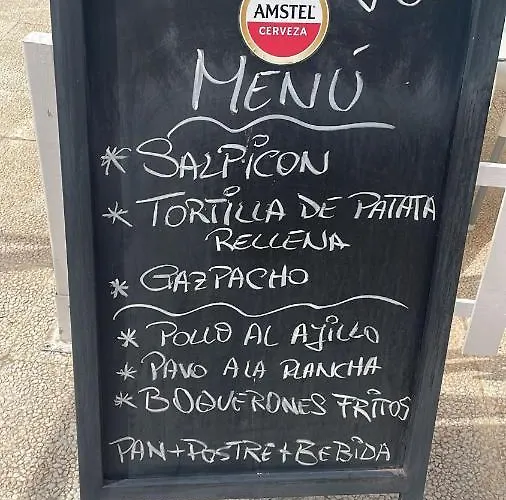 AMSTEL
CERVEZA
MENÚ
* SALPICON
* TORTILLA DE PATATA
RELLENA
* GAZPACHO
* POLLO AL AJILLO
* PAVO A LA PLANCHA
* BOQUERONES FRITOS
PAN+POSTRE+BEBIDA